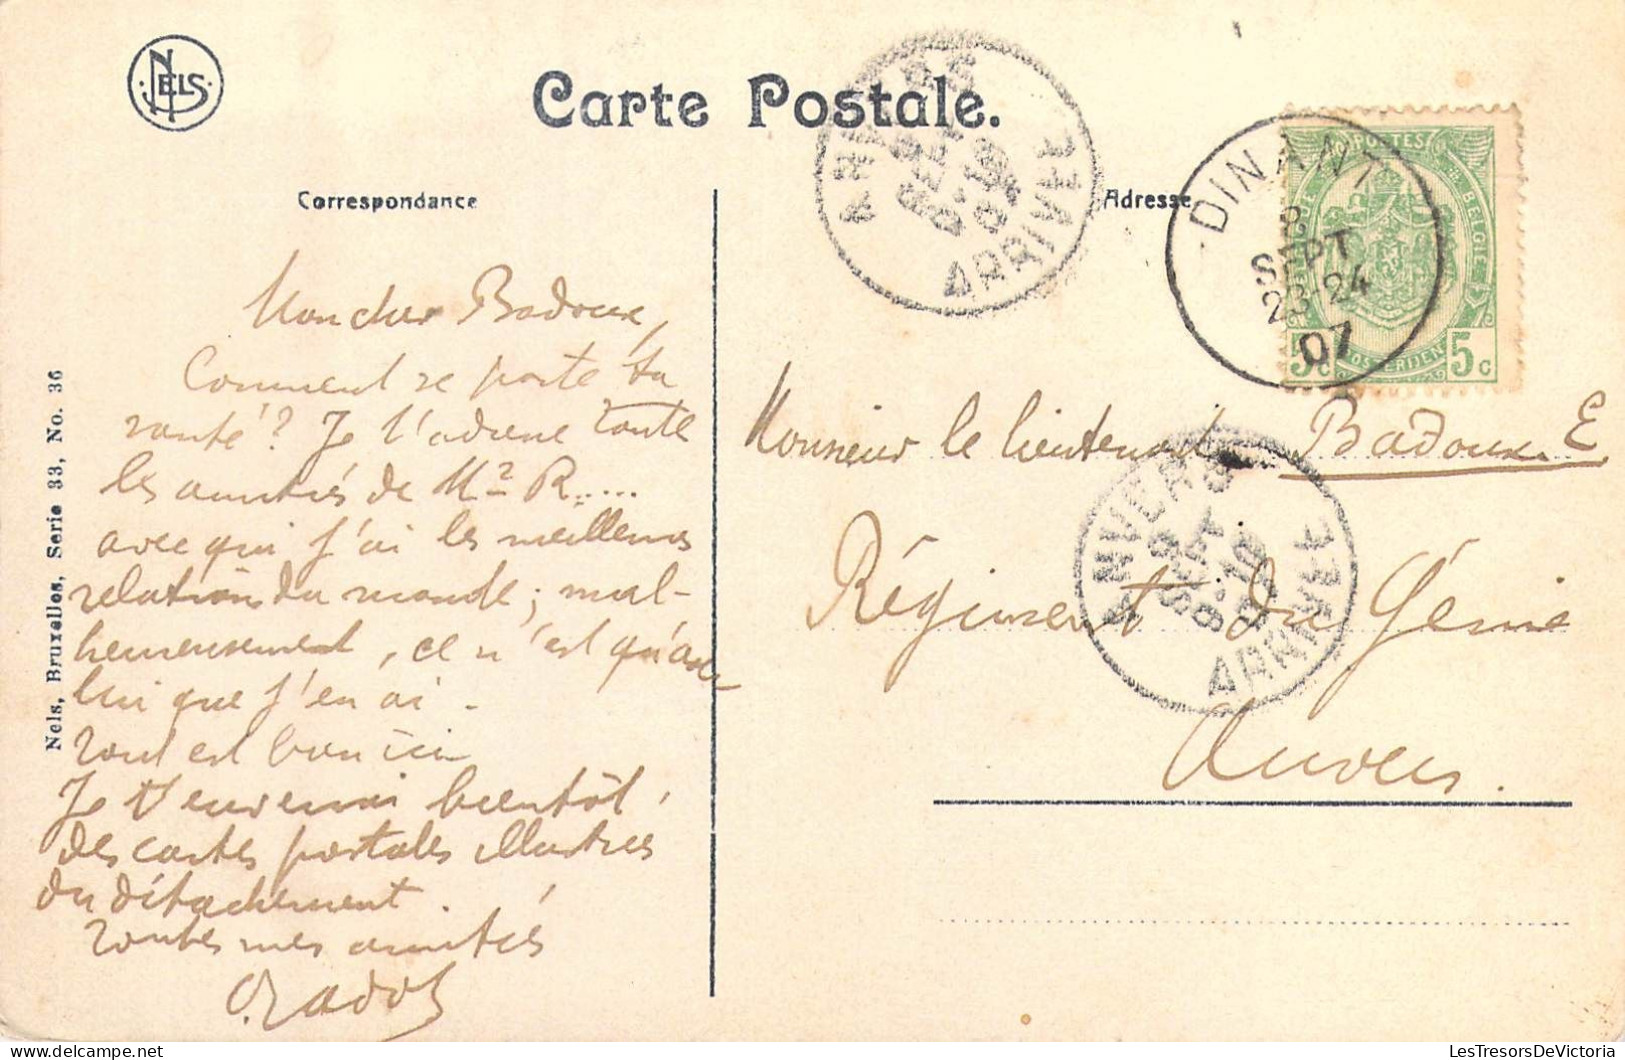 NELS
Carte Postale.
Correspondance
Adresse
ANVERS
9 SEPT
9-10
07
ARRIVÉE
DINANT
8
SEPT
23-24
07
POSTES
BELGIE
POSTERIJEN
5c 5c
Mon cher Badoux,
Comment se porte ta
santé? Je t'adresse toute
les amitiés de Mr R.....
avec qui j'ai les meilleures
relations du monde; mal-
heureusement, ce n'est qu'avec
lui que j'en ai.
Tout est bon ici
Je t'enverrai bientôt
des cartes postales illustrées
du détachement.
Toutes mes amitiés
Monsieur le lieutenant Badoux E
Régiment du Génie
Anvers.
ANVERS
9 SEPT
9-10
07
ARRIVÉE
Nels, Bruxelles, Serie 33, No. 36
LesTresorsDeVictoria